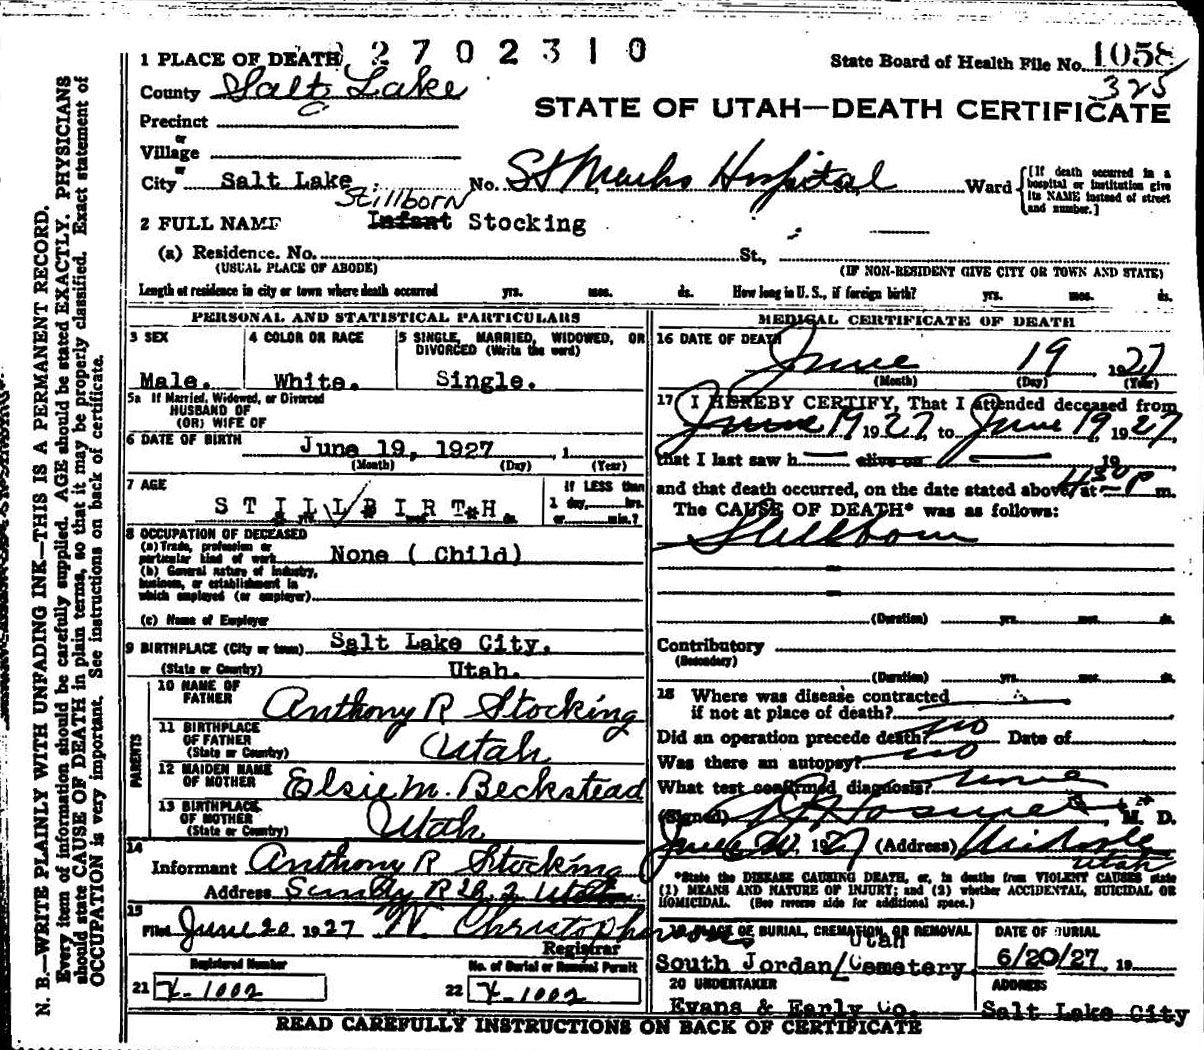 1 PLACE OF DEATH 2702310 State Board of Health File No. 1058
325
County Salt Lake
STATE OF UTAH—DEATH CERTIFICATE
Precinct
or
Village
or
City Salt Lake No. St Marks Hospital St., Ward [If death occurred in a hospital or institution give its NAME instead of street and number.]
Stillborn
2 FULL NAME Infant Stocking
(a) Residence. No. St.,
(USUAL PLACE OF ABODE) (IF NON-RESIDENT GIVE CITY OR TOWN AND STATE)
Length of residence in city or town where death occurred yrs. mos. ds. How long in U. S., if foreign birth? yrs. mos. ds.
PERSONAL AND STATISTICAL PARTICULARS
3 SEX 4 COLOR OR RACE 5 SINGLE, MARRIED, WIDOWED, OR
DIVORCED (Write the word)
Male. White. Single.
5a If Married, Widowed, or Divorced
HUSBAND OF
(OR) WIFE OF
6 DATE OF BIRTH June 19, 1927 , 1
(Month) (Day) (Year)
7 AGE If LESS than
STILLBIRTH 1 day, hrs.
or min.?
8 OCCUPATION OF DECEASED
(a) Trade, profession or
particular kind of work None ( Child)
(b) General nature of industry,
business, or establishment in
which employed (or employer)
(c) Name of Employer
9 BIRTHPLACE (City or town) Salt Lake City.
(State or Country) Utah.
PARENTS
10 NAME OF
FATHER Anthony R Stocking
11 BIRTHPLACE
OF FATHER Utah
(State or Country)
12 MAIDEN NAME
OF MOTHER Elsie M. Beckstead
13 BIRTHPLACE
OF MOTHER Utah
(State or Country)
14
Informant Anthony R Stocking
Address R 2 Utah
15
Filed June 20 1927 Christopherson
Registrar
Registered Number No. of Burial or Removal Permit
21 X-1002 22 X-1002
MEDICAL CERTIFICATE OF DEATH
16 DATE OF DEATH
June 19 1927
(Month) (Day) (Year)
17 I HEREBY CERTIFY, That I attended deceased from
June 19 1927, to June 19, 1927
that I last saw h alive on 19
and that death occurred, on the date stated above, at 430 P m.
The CAUSE OF DEATH* was as follows:
Stillborn
(Duration) yrs. mos. ds.
Contributory
(Secondary)
(Duration) yrs. mos. ds.
18 Where was disease contracted
if not at place of death?
Did an operation precede death? no Date of
Was there an autopsy? no
What test confirmed diagnosis? none
(Signed) M. D.
June 20, 1927 (Address) Midvale
Utah
*State the DISEASE CAUSING DEATH, or, in deaths from VIOLENT CAUSES state
(1) MEANS AND NATURE OF INJURY; and (2) whether ACCIDENTAL, SUICIDAL OR
HOMICIDAL. (See reverse side for additional space.)
19 PLACE OF BURIAL, CREMATION, OR REMOVAL DATE OF BURIAL
Utah
South Jordan/Cemetery. 6/20/27, 19
20 UNDERTAKER ADDRESS
Evans & Early Co. Salt Lake City
READ CAREFULLY INSTRUCTIONS ON BACK OF CERTIFICATE
N. B.—WRITE PLAINLY WITH UNFADING INK—THIS IS A PERMANENT RECORD.
Every item of information should be carefully supplied. AGE should be stated EXACTLY. PHYSICIANS
should state CAUSE OF DEATH in plain terms, so that it may be properly classified. Exact statement of
OCCUPATION is very important. See instructions on back of certificate.